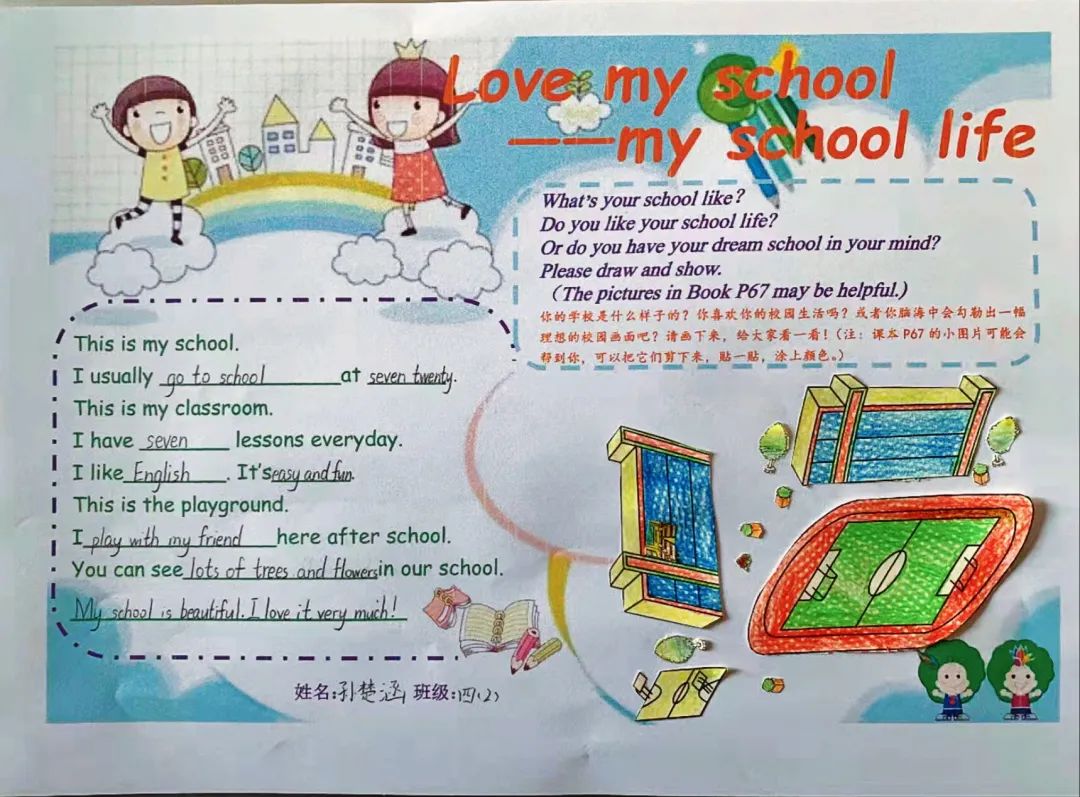 Love my school
——my school life
What's your school like?
Do you like your school life?
Or do you have your dream school in your mind?
Please draw and show.
（The pictures in Book P67 may be helpful.）
你的学校是什么样子的？你喜欢你的校园生活吗？或者你脑海中会勾勒出一幅
理想的校园画面吧？请画下来，给大家看一看！（注：课本P67的小图片可能会
帮到你，可以把它们剪下来，贴一贴，涂上颜色。）
This is my school.
I usually go to school at seven twenty.
This is my classroom.
I have seven lessons everyday.
I like English. It's easy and fun.
This is the playground.
I play with my friend here after school.
You can see lots of trees and flowers in our school.
My school is beautiful. I love it very much!
姓名:孙楚涵 班级:四(2)